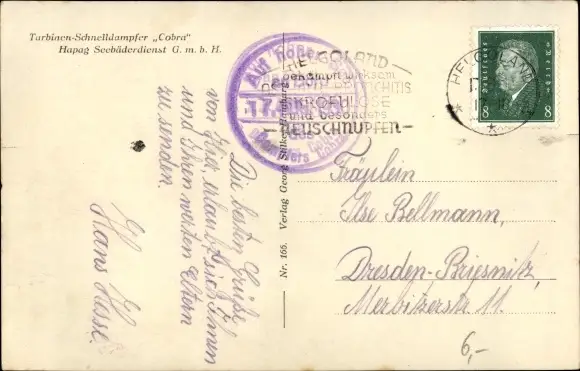 Turbinen-Schnelldampfer „Cobra"
Hapag Seebäderdienst G. m. b. H.
Die besten Grüße
von hier, erlaubt sich Ihnen
und Ihren werten Eltern
zu senden.
Hans Hesse.
Nr. 166. Verlag Georg Stilke, Hamburg
Auf hoher
17.
HELGOLAND
bekämpft wirksam
SKROFULOSE
und besonders
HEUSCHNUPFEN
HELGOLAND
Deutsches Reich
8 8
Fräulein
Ilse Bellmann,
Dresden-Briesnitz,
Merbitzerstr. 11.
6,-